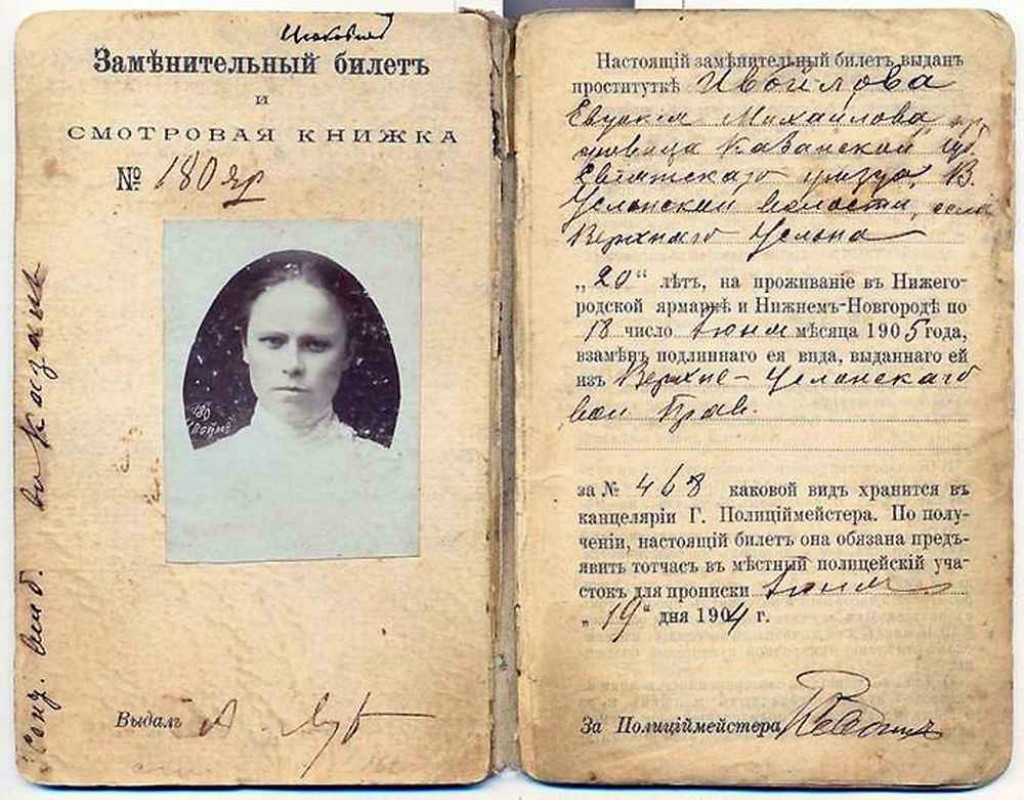 Замѣнительный билетъ
и
СМОТРОВАЯ КНИЖКА
№ 180 яр
180
Выдалъ А.
въ Казань
Настоящій замѣнительный билетъ выданъ
проституткѣ Ивойлова
Михайлова
Казанской губ.
уѣзда, В.
Услонской волости, села
Верхняго Услона
„20“ лѣтъ, на проживаніе въ Нижего-
родской ярмаркѣ и Нижнемъ-Новгородѣ по
18 число Іюня мѣсяца 1905 года,
взамѣнъ подлиннаго ея вида, выданнаго ей
изъ Верхне-Услонскаго
вол. Прав.
за № 468 каковой видъ хранится въ
канцеляріи Г. Полиціймейстера. По полу-
ченіи, настоящій билетъ она обязана предъ-
явить тотчасъ въ мѣстный полицейскій уча-
стокъ для прописки Іюня
„19“ дня 1904 г.
За Полиціймейстера